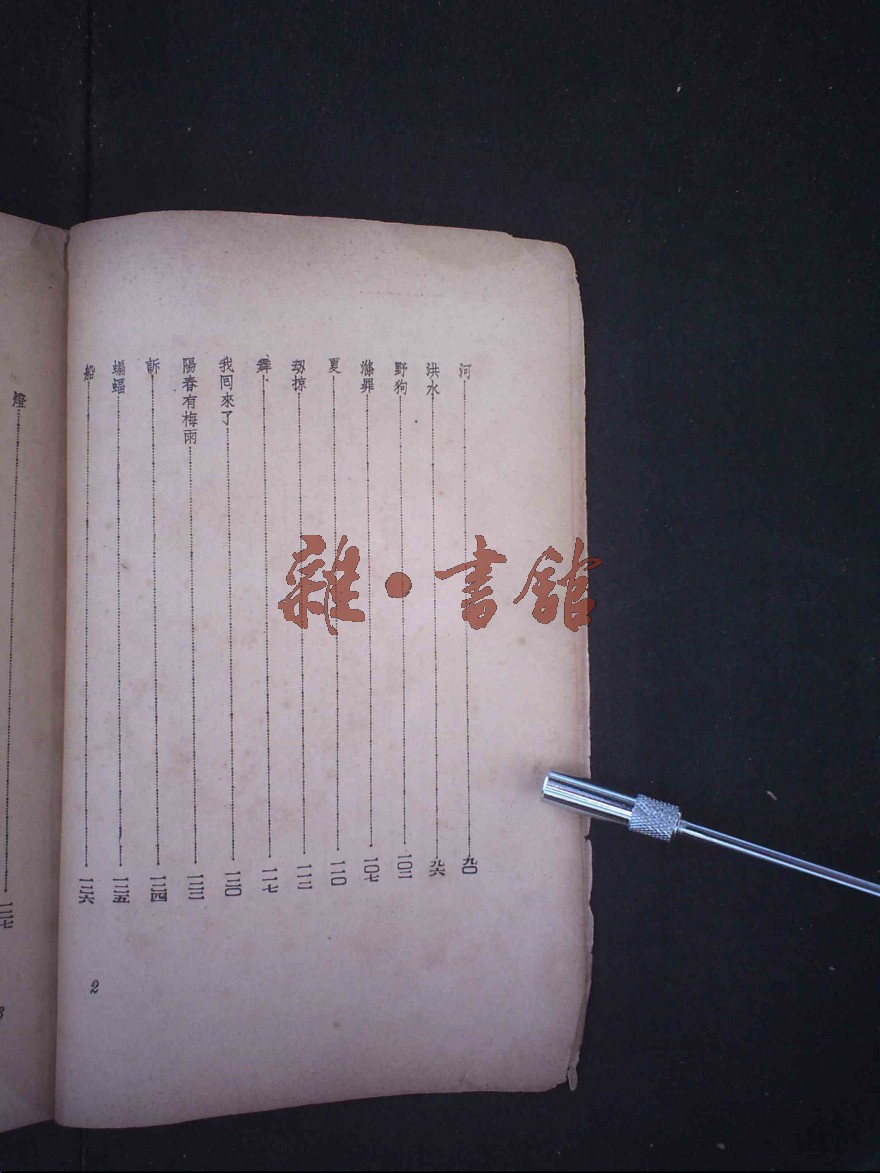 河……九〇
洪水……九六
野狗……一〇二
滌罪……一〇七
夏……一一〇
刧掠……一一二
舞……一一七
我囘來了……一二〇
陽春有梅雨……一二二
訴……一二四
蝙蝠……一二五
船……一二六
2
燈……一二七
3
雜·書館